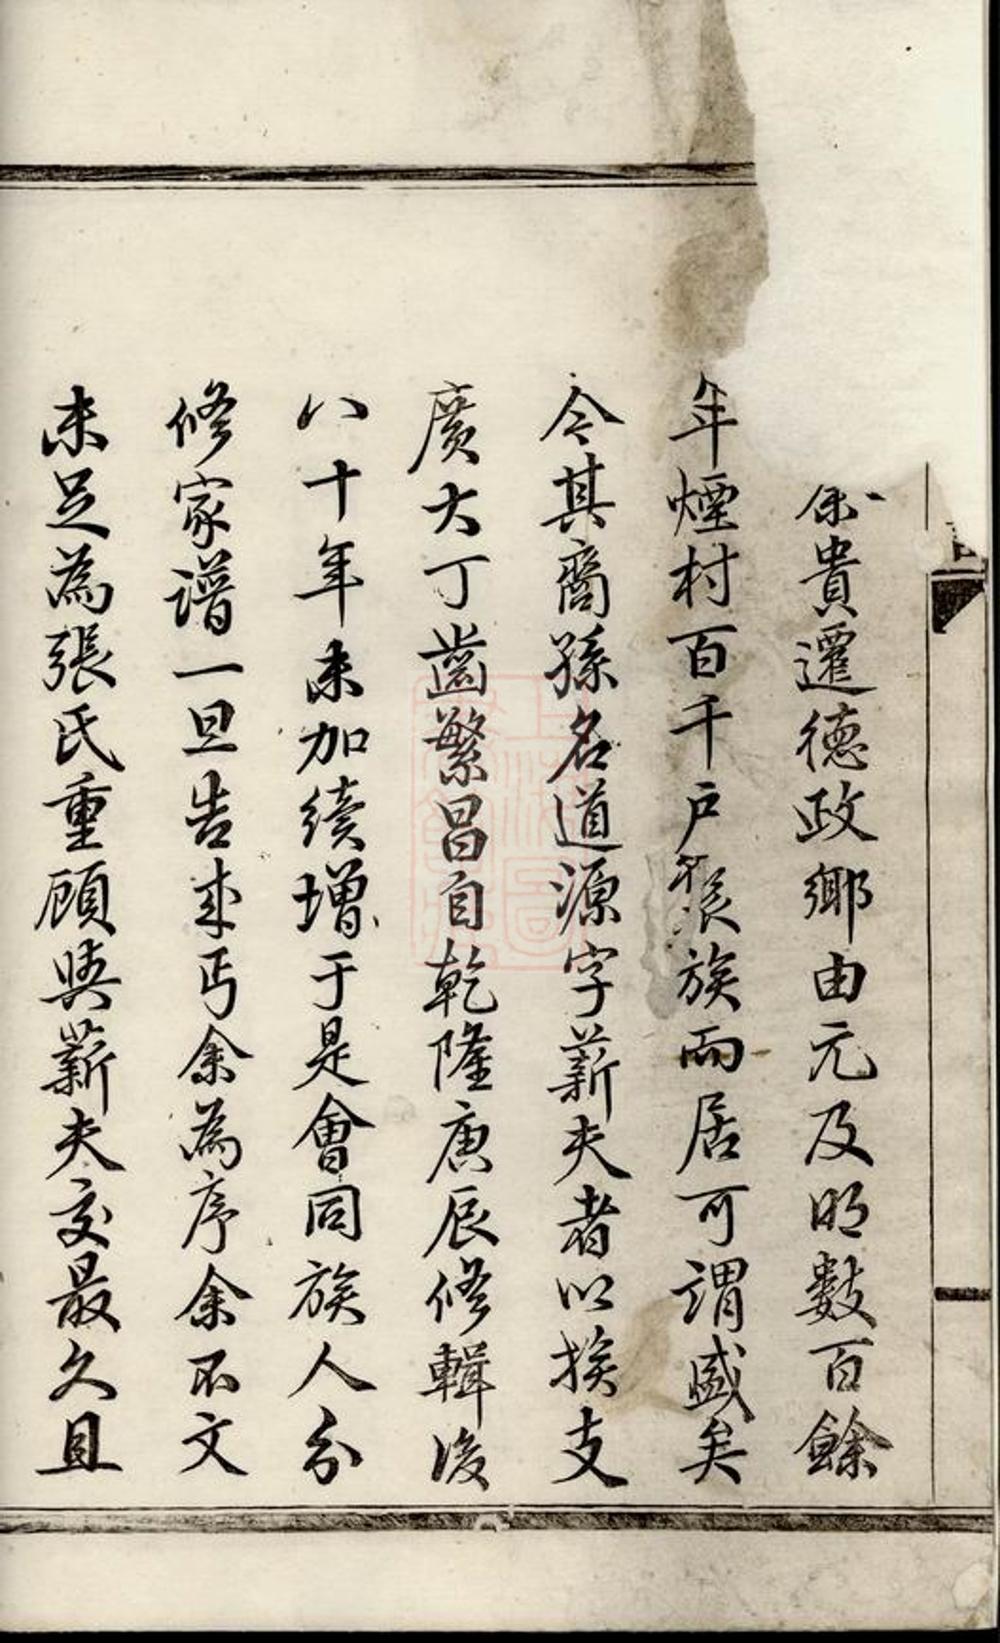 貴遷德政鄉由元及明數百餘
年煙村百千戶張族而居可謂盛矣
今其裔孫名道源字薪夫者以族支
廣大丁齒繁昌自乾隆庚辰修輯後
八十年未加續增于是會同族人分
修家譜一旦告来丐余為序余不文
未足為張氏重顧與薪夫交最久且